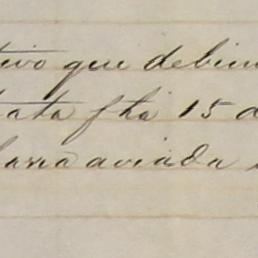 tivo que debien
data fha 15 d
barra aviada